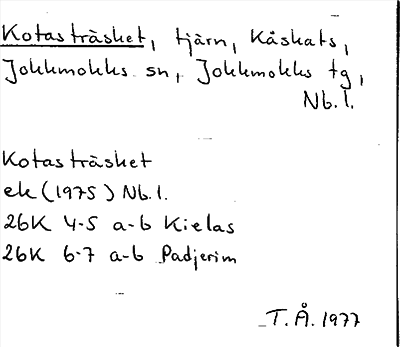 Kotasträsket, tjärn, Kåskats,
Jokkmokks sn, Jokkmokks tg,
Nb.l.
Kotasträsket
ek (1975) Nb.l.
26K 4-5 a-b Kielas
26K 6-7 a-b Padjerim
T.Å. 1977